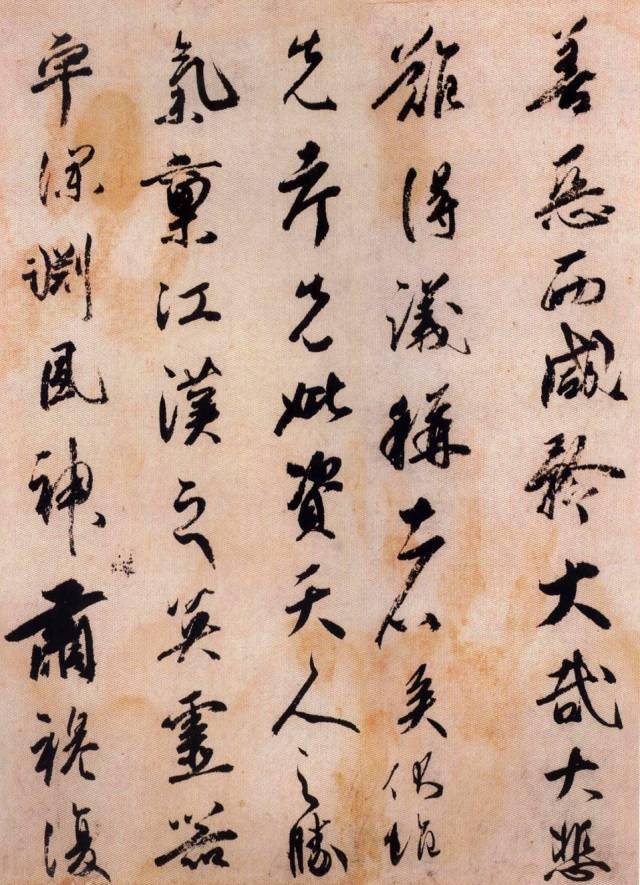 善惡而咸矜大哉大悲
難得議稱者矣伏惟
先考先妣資天人之勝
氣稟江漢之英靈器
宇深淵風神肅穆復